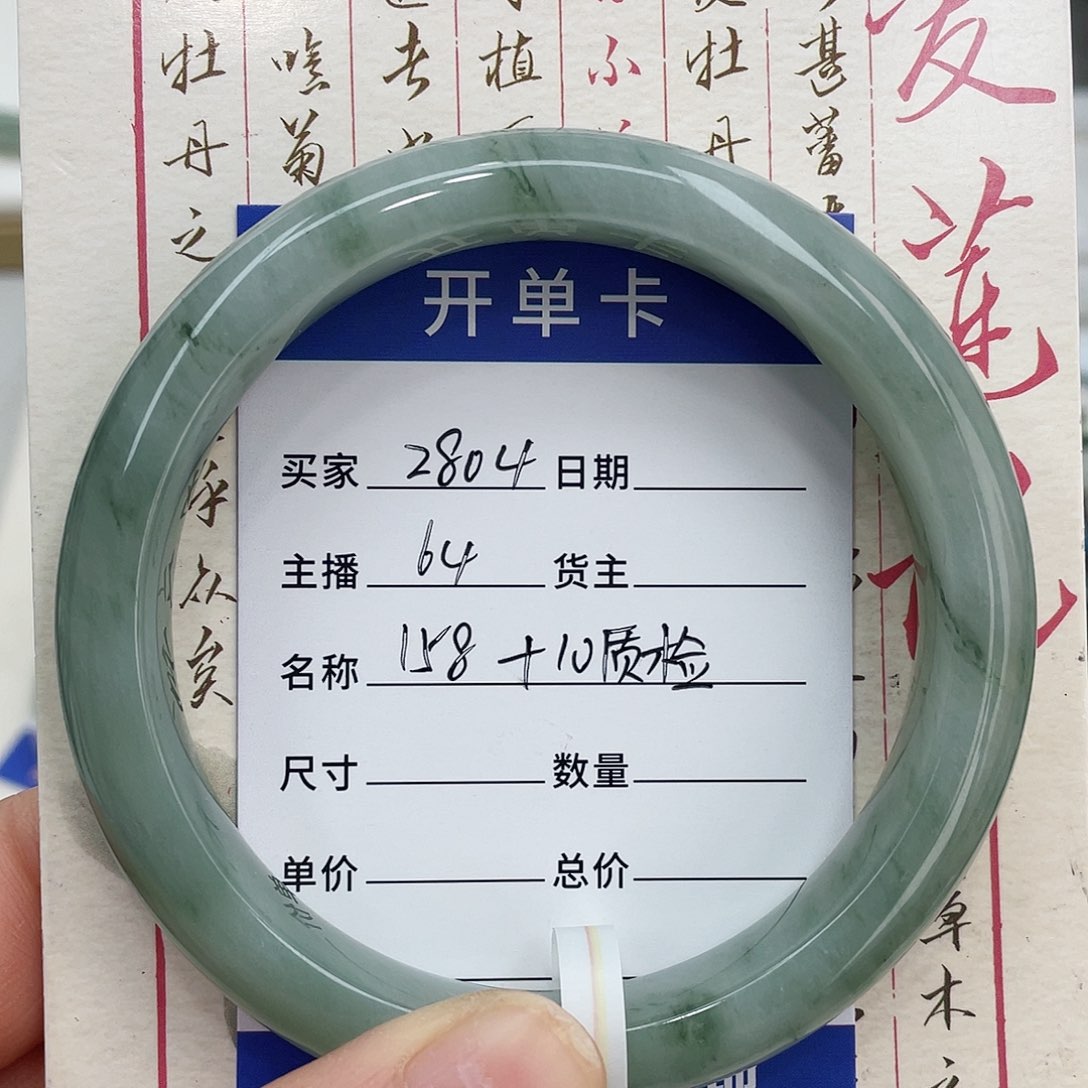 开单卡
买家 2804 日期
主播 64 货主
名称 158+10质检
尺寸 数量
单价 总价
爱莲说
甚蕃
牡丹
植
去
噫菊
牡丹之
乎众矣
草木之